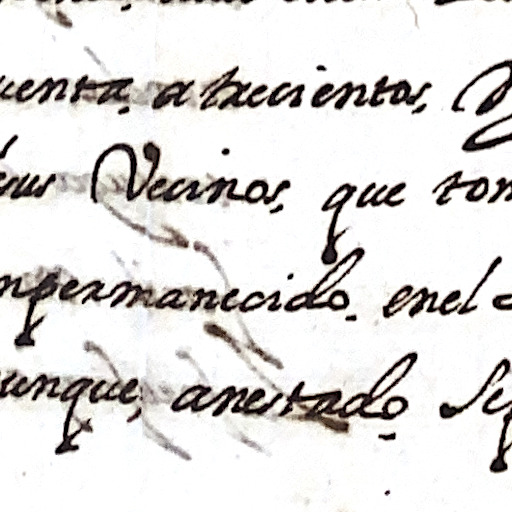 uenta, a trecientos, y
sus Vecinos, que tom
npermanecido, enel
unque, anestado Se